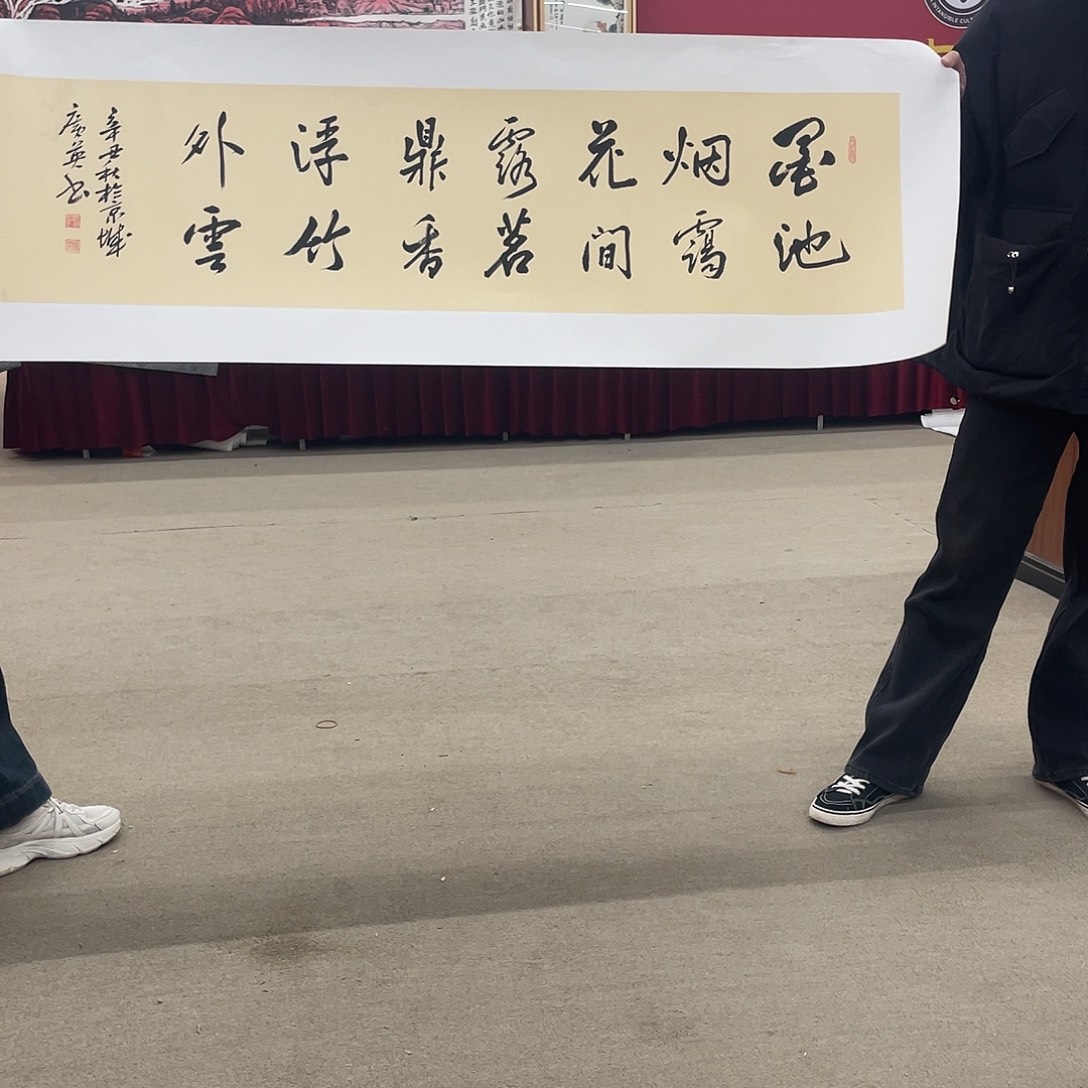 墨池
烟霭
花间
露茗
鼎香
浮竹
外雲
辛丑秋於京城
廣英书
INTANGIBLE CULT